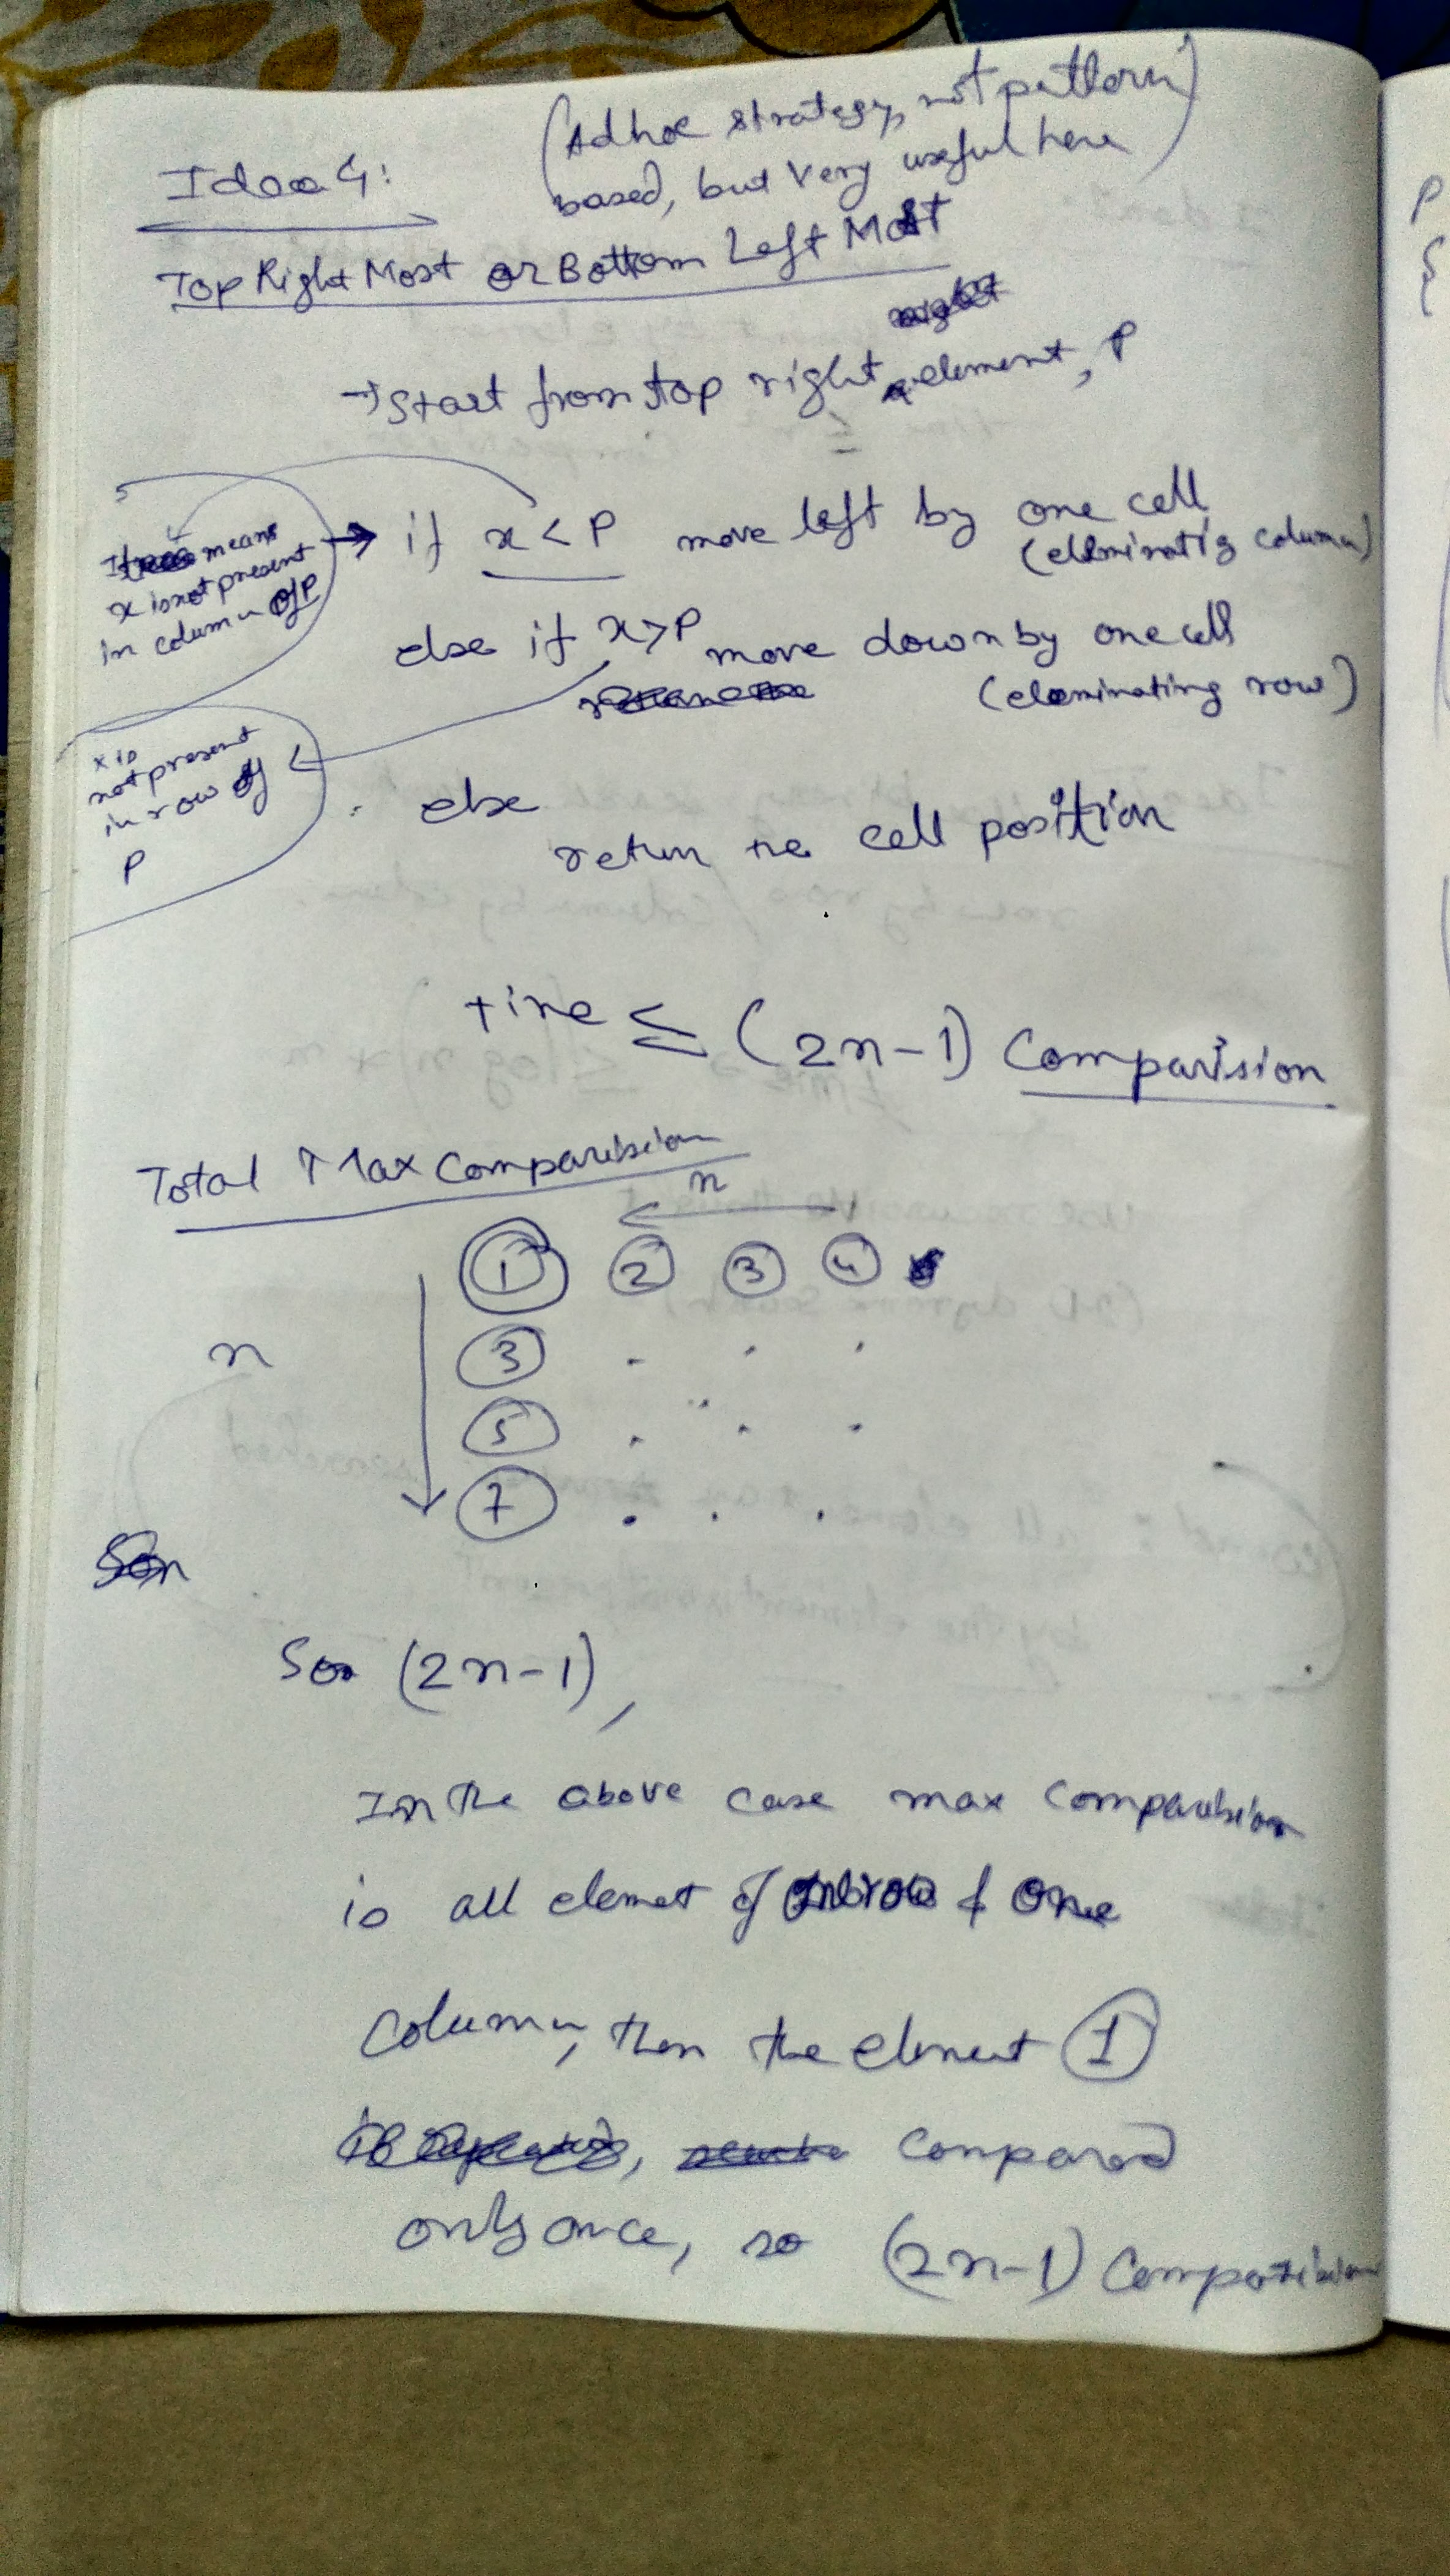 Idea 4:
(Adhoc strategy, not pattern
based, but very useful here)
Top Right Most or Bottom Left Most
→ Start from top right element, P
→ if x < P move left by one cell
(eliminatig column)
It means
x is not present
in column of P
else if x > P move down by one cell
(eleminating row)
x is
not present
in row of
P
else
return the cell position
time ≤ (2n-1) Comparision
Total Max Comparision
n
1 2 3 4
n
3 . . .
5 . . .
7 . . .
So (2n-1),
In the above case max comparision
is all elemet of one row & one
Column, then the element 1
compared
only once, so (2n-1) Comparision
P